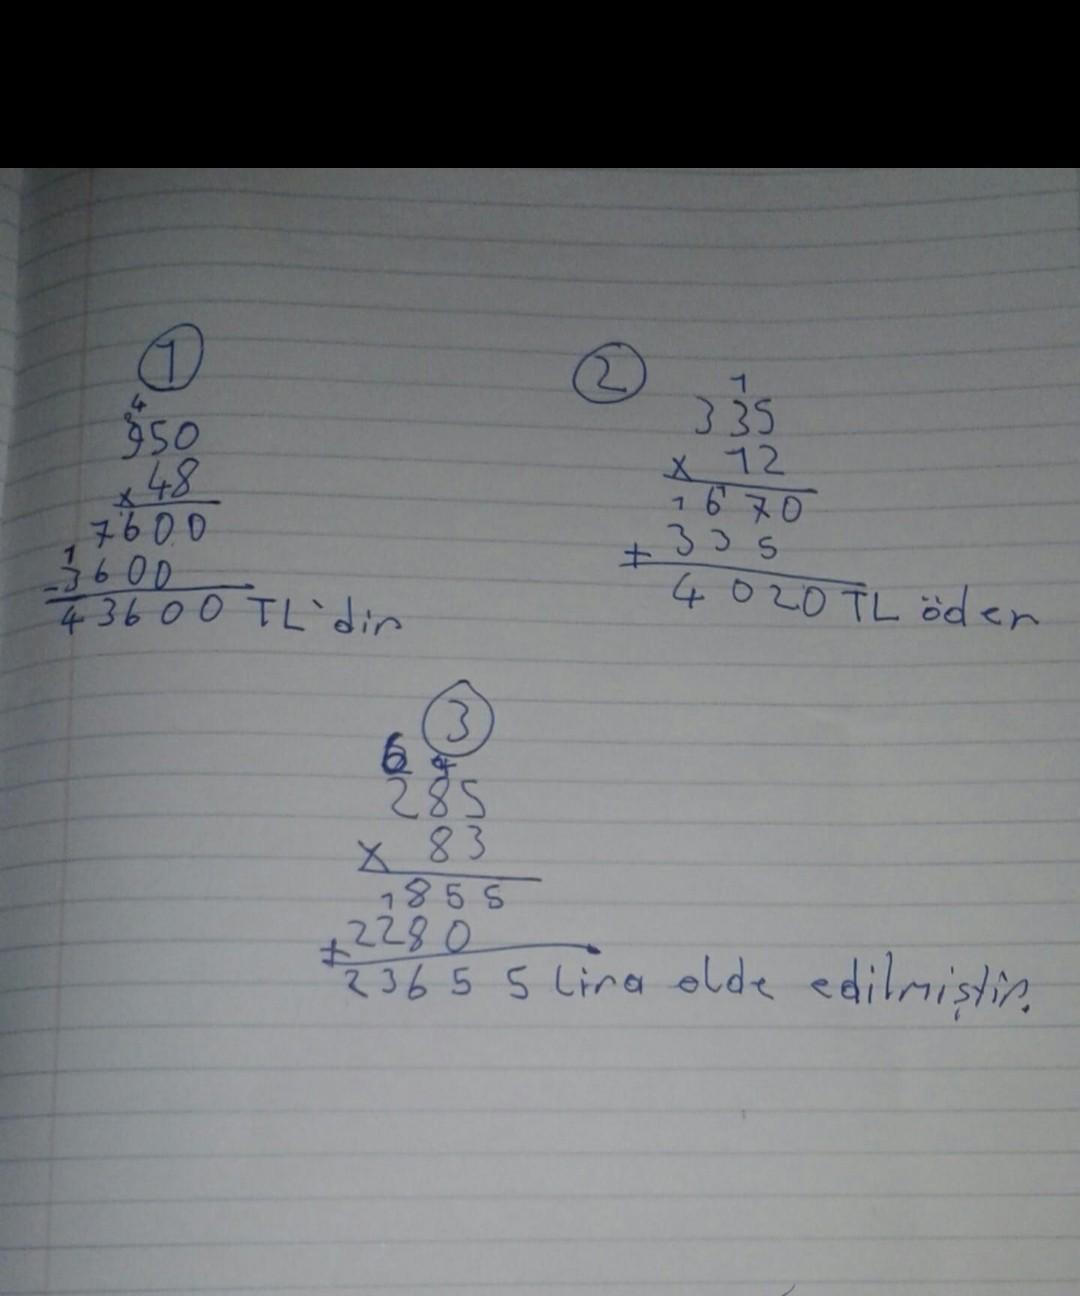 1
4
950
x 48
7600
1
3600
43600 TL'dir
2
1
335
x 12
1670
+ 335
4020 TL öder
3
6 4
285
x 83
1855
+2280
23655 Lira elde edilmiştir.